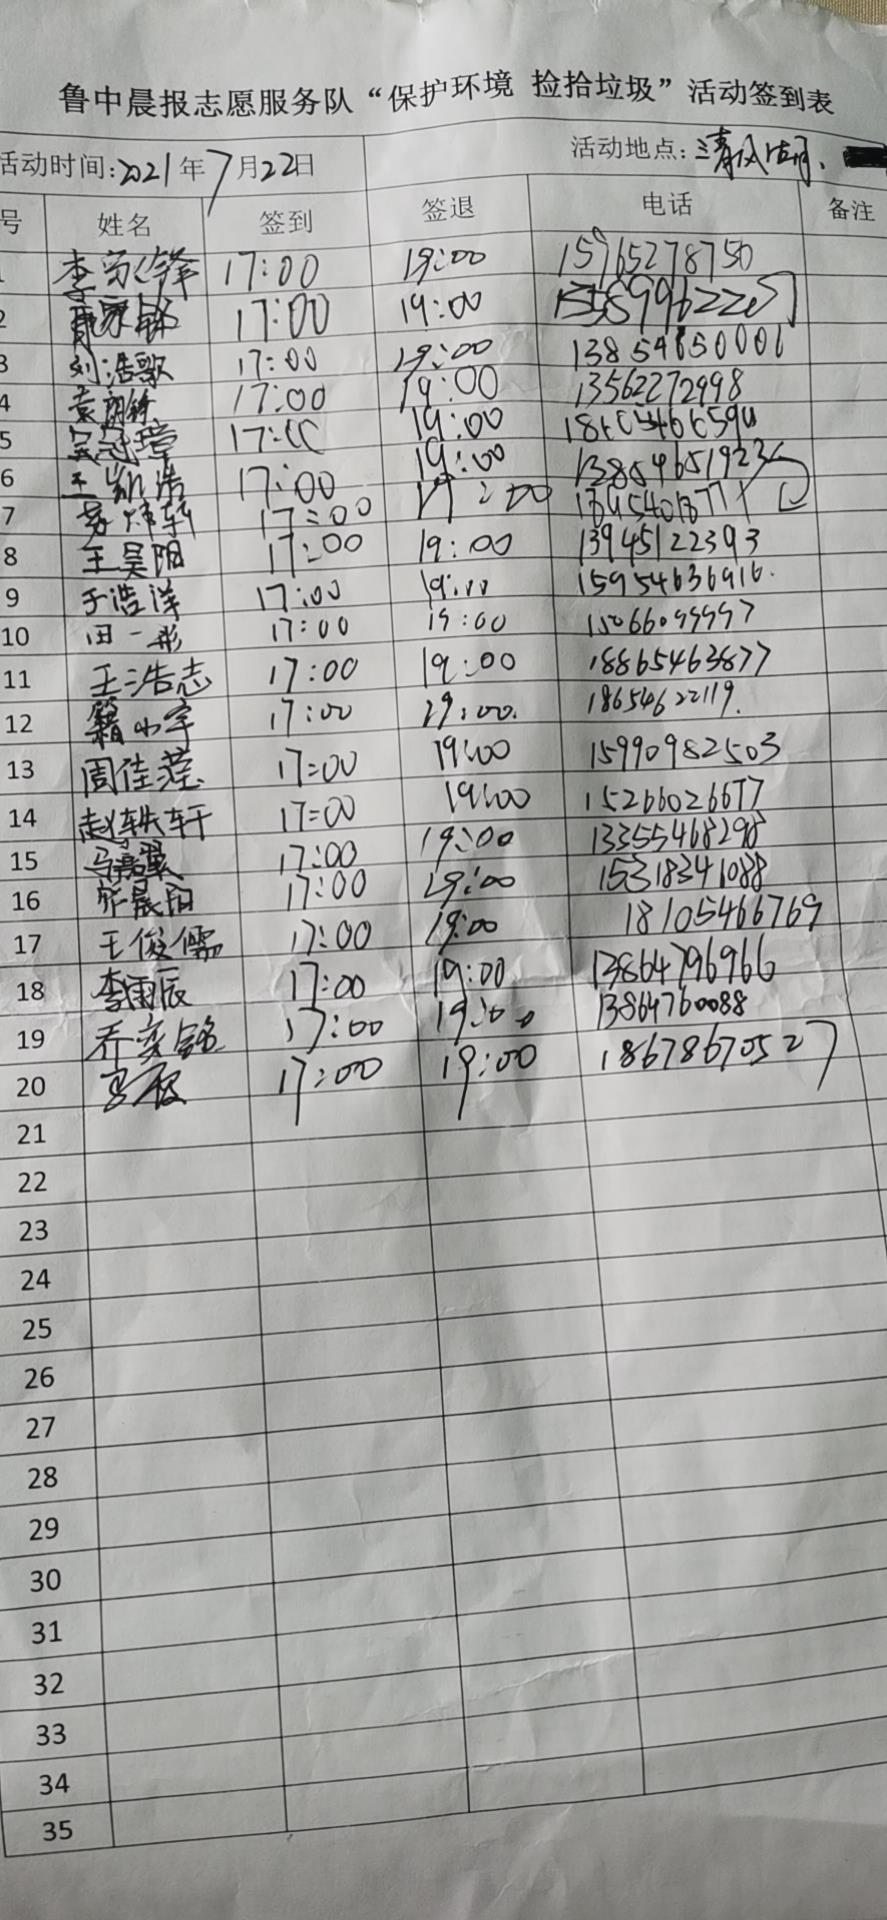 鲁中晨报志愿服务队“保护环境 捡拾垃圾”活动签到表
活动时间:2021年7月22日 活动地点:清风湖.
号 姓名 签到 签退 电话 备注
1 李 锋 17:00 19:00 15965278750
2 17:00 19:00
3 刘浩歌 17:00 19:00 13854650006
4 袁 17:00 19:00 13562272998
5 吴冠璋 17:00 19:00
6 王凯浩 17:00 19:00
7 17:00 19:00
8 王昊阳 17:00 19:00 13945122393
9 于浩洋 17:00 19:00 15954636916.
10 田一彤 17:00 19:00
11 王浩志 17:00 19:00 18865463877
12 籍小宇 17:00 19:00. 18654622119.
13 周佳莹 17:00 19:00 15990982503
14 赵轶轩 17:00 19:00 15266026677
15 17:00 19:00 13355468298
16 晨阳 17:00 19:00 15318341088
17 王俊儒 17:00 19:00 18105466769
18 李雨辰 17:00 19:00 13864796966
19 乔奕铭 17:00 19:00 13864760088
20 17:00 19:00 18678670527
21
22
23
24
25
26
27
28
29
30
31
32
33
34
35